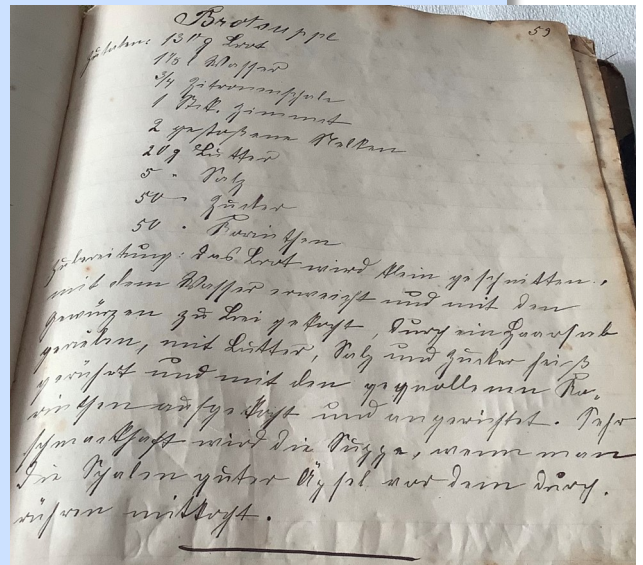 Brotsuppe
59
Zutaten: 13 g Brot
1 1/8 l Wasser
3/4 Zitronenschale
1 Stck. Zimmet
2 gestoßene Nelken
20 g Butter
5 " Salz
50 " Zucker
50 " Korinthen
Zubereitung: Das Brot wird klein geschnitten,
mit dem Wasser erweicht und mit den
Gewürzen zu Brei gekocht, durch ein Haarsieb
gerieben, mit Butter, Salz und Zucker heiß
gerührt und mit den gequollenen Ko-
rinthen aufgekocht und angerichtet. Sehr
schmackhaft wird die Suppe, wenn man
die Schalen guter Äpfel vor dem Durch-
rühren mitkocht.